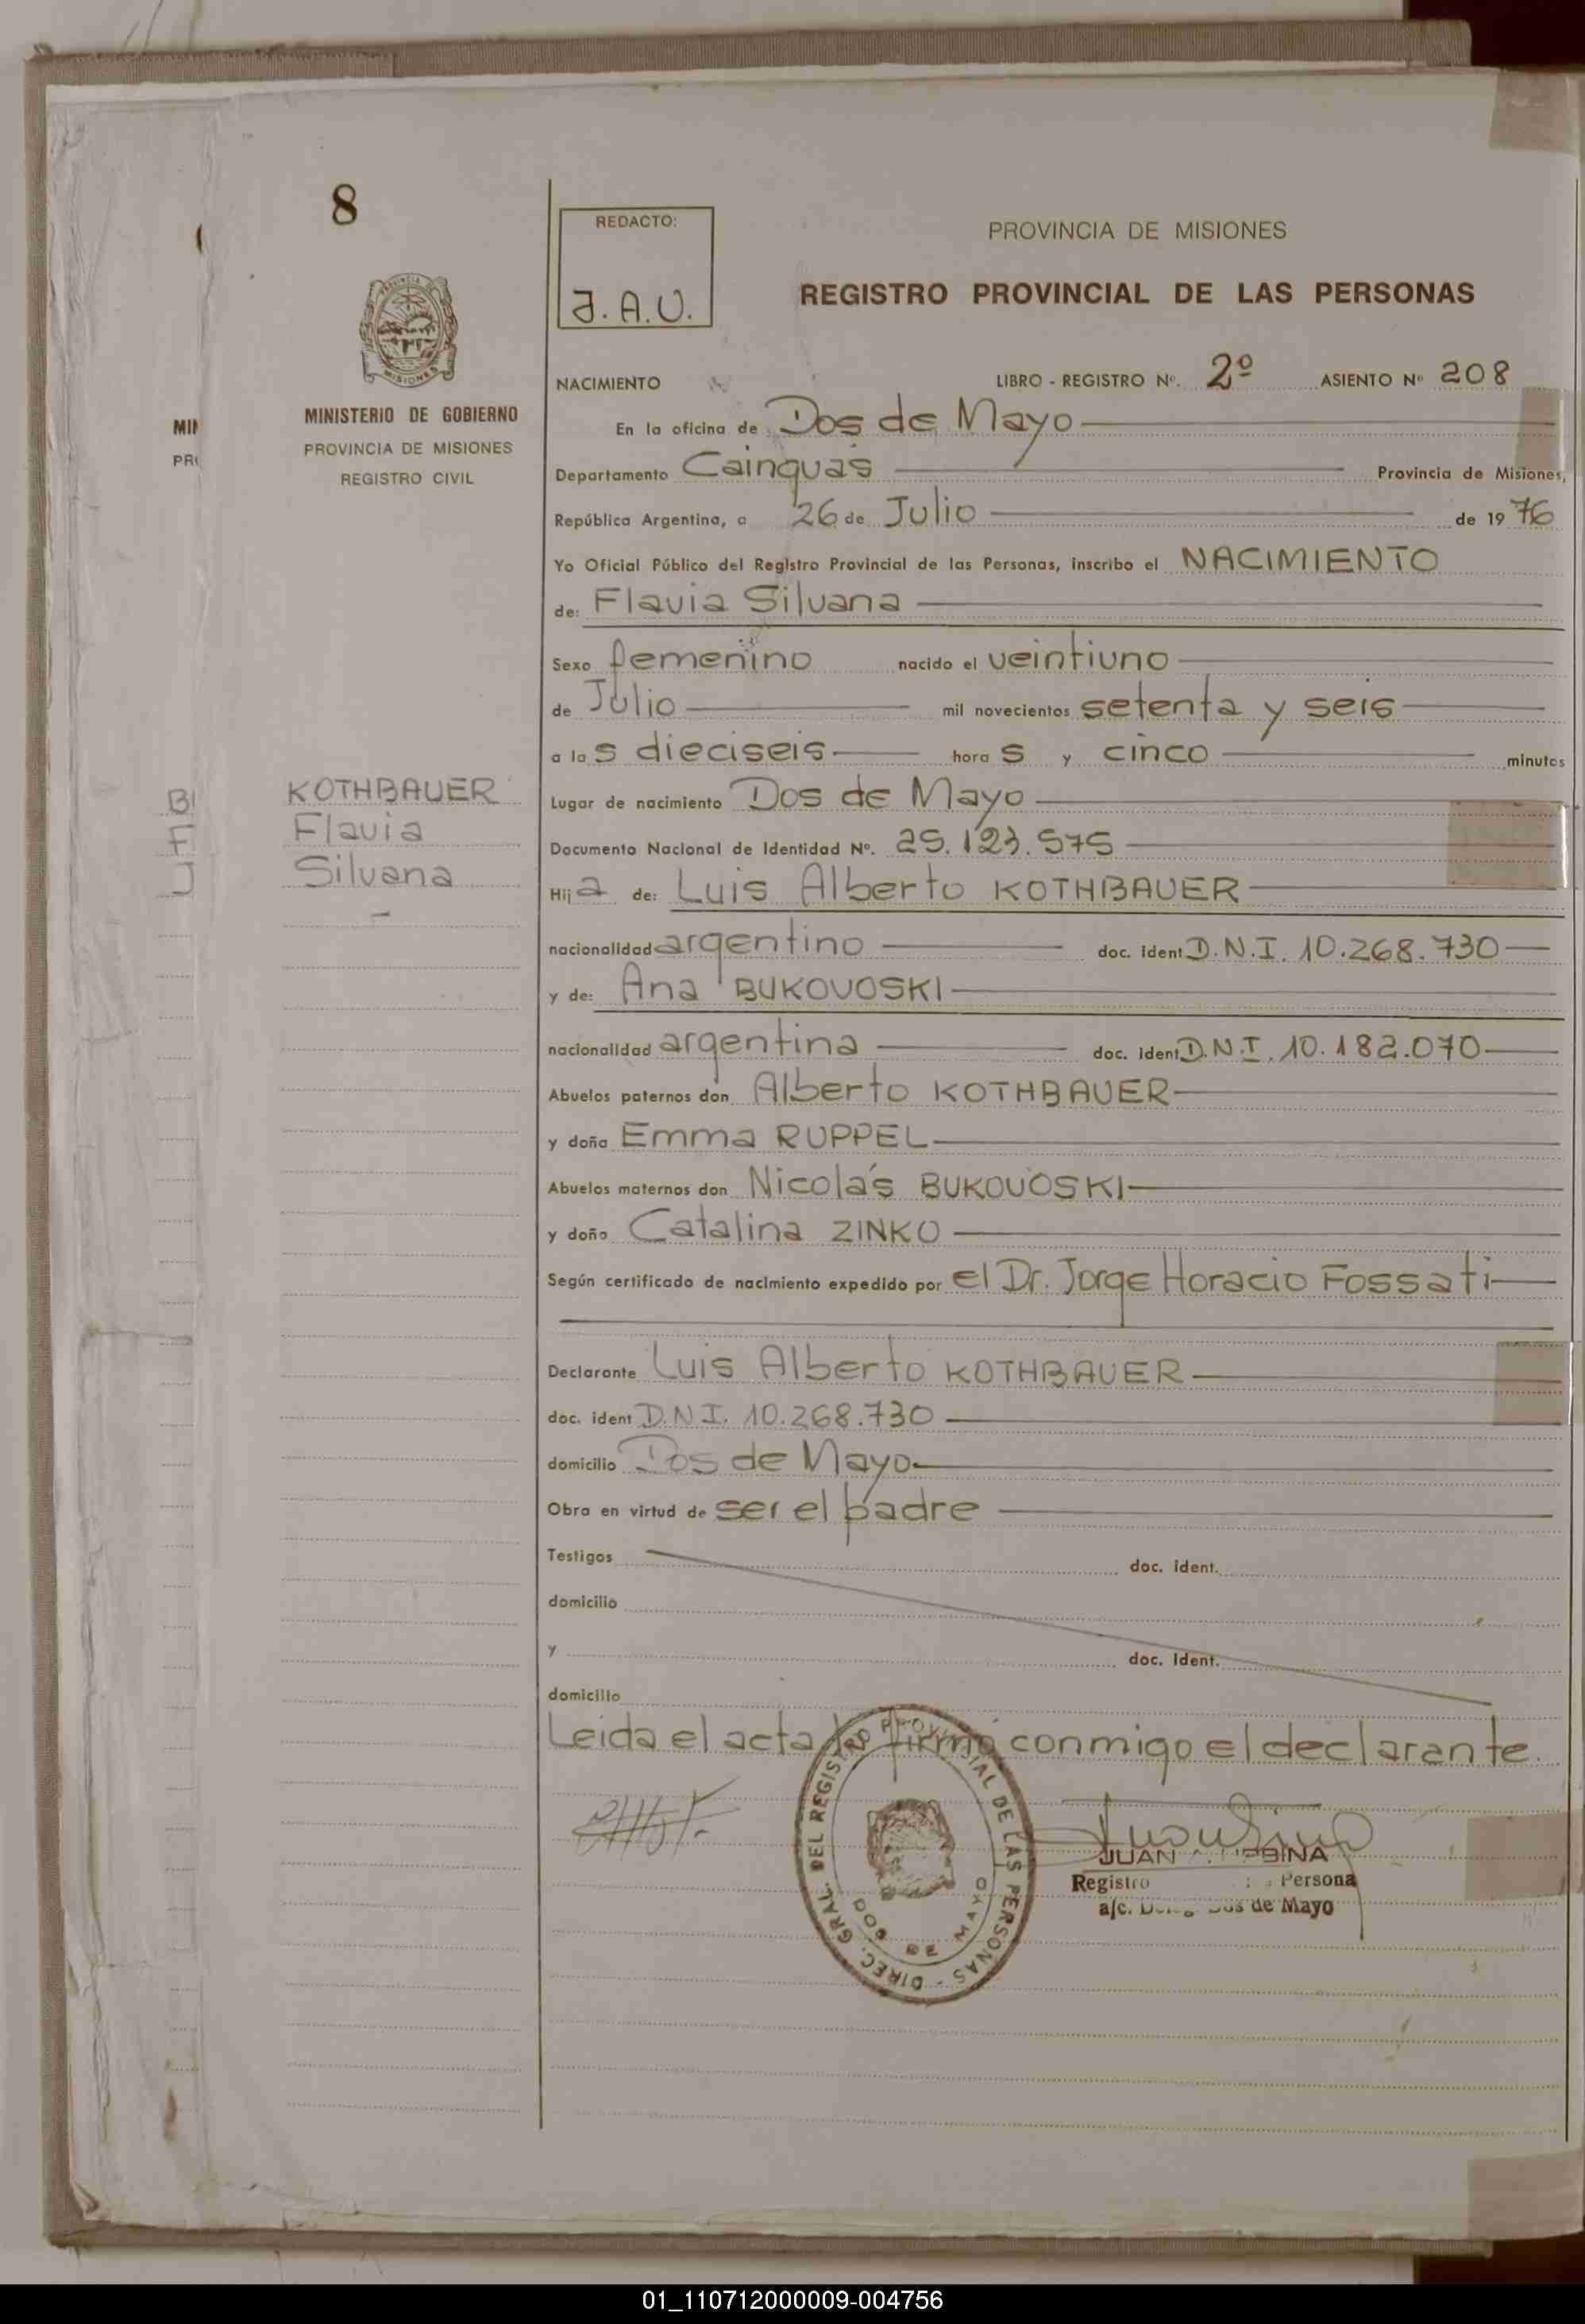 8
MINISTERIO DE GOBIERNO
PROVINCIA DE MISIONES
REGISTRO CIVIL
KOTHBAUER
Flavia
Silvana
REDACTO:
J.A.U.
PROVINCIA DE MISIONES
REGISTRO PROVINCIAL DE LAS PERSONAS
NACIMIENTO LIBRO - REGISTRO Nº. 2º ASIENTO Nº 208
En la oficina de Dos de Mayo
Departamento Cainguas Provincia de Misiones,
República Argentina, a 26 de Julio de 1976
Yo Oficial Público del Registro Provincial de las Personas, inscribo el NACIMIENTO
de: Flavia Silvana
Sexo femenino nacido el veintiuno
de Julio mil novecientos setenta y seis
a las dieciseis horas y cinco minutos
Lugar de nacimiento Dos de Mayo
Documento Nacional de Identidad Nº. 25.123.575
Hija de: Luis Alberto KOTHBAUER
nacionalidad argentino doc. ident D.N.I. 10.268.730
y de: Ana BUKOVOSKI
nacionalidad argentina doc. ident D.N.I. 10.182.070
Abuelos paternos don Alberto KOTHBAUER
y doña Emma RUPPEL
Abuelos maternos don Nicolás BUKOVOSKI
y doña Catalina ZINKO
Según certificado de nacimiento expedido por el Dr. Jorge Horacio Fossati
Declarante Luis Alberto KOTHBAUER
doc. ident D.N.I. 10.268.730
domicilio Dos de Mayo
Obra en virtud de ser el padre
Testigos doc. ident.
domicilio
y doc. Ident.
domicilio
Leida el acta firmó conmigo el declarante.
DIREC. GRAL. DEL REGISTRO PROVINCIAL DE LAS PERSONAS -
DOS DE MAYO
JUAN A. URBINA
Registro Persona
a/c. Deleg Dos de Mayo
MIN
PR
B
F
J
01_110712000009-004756